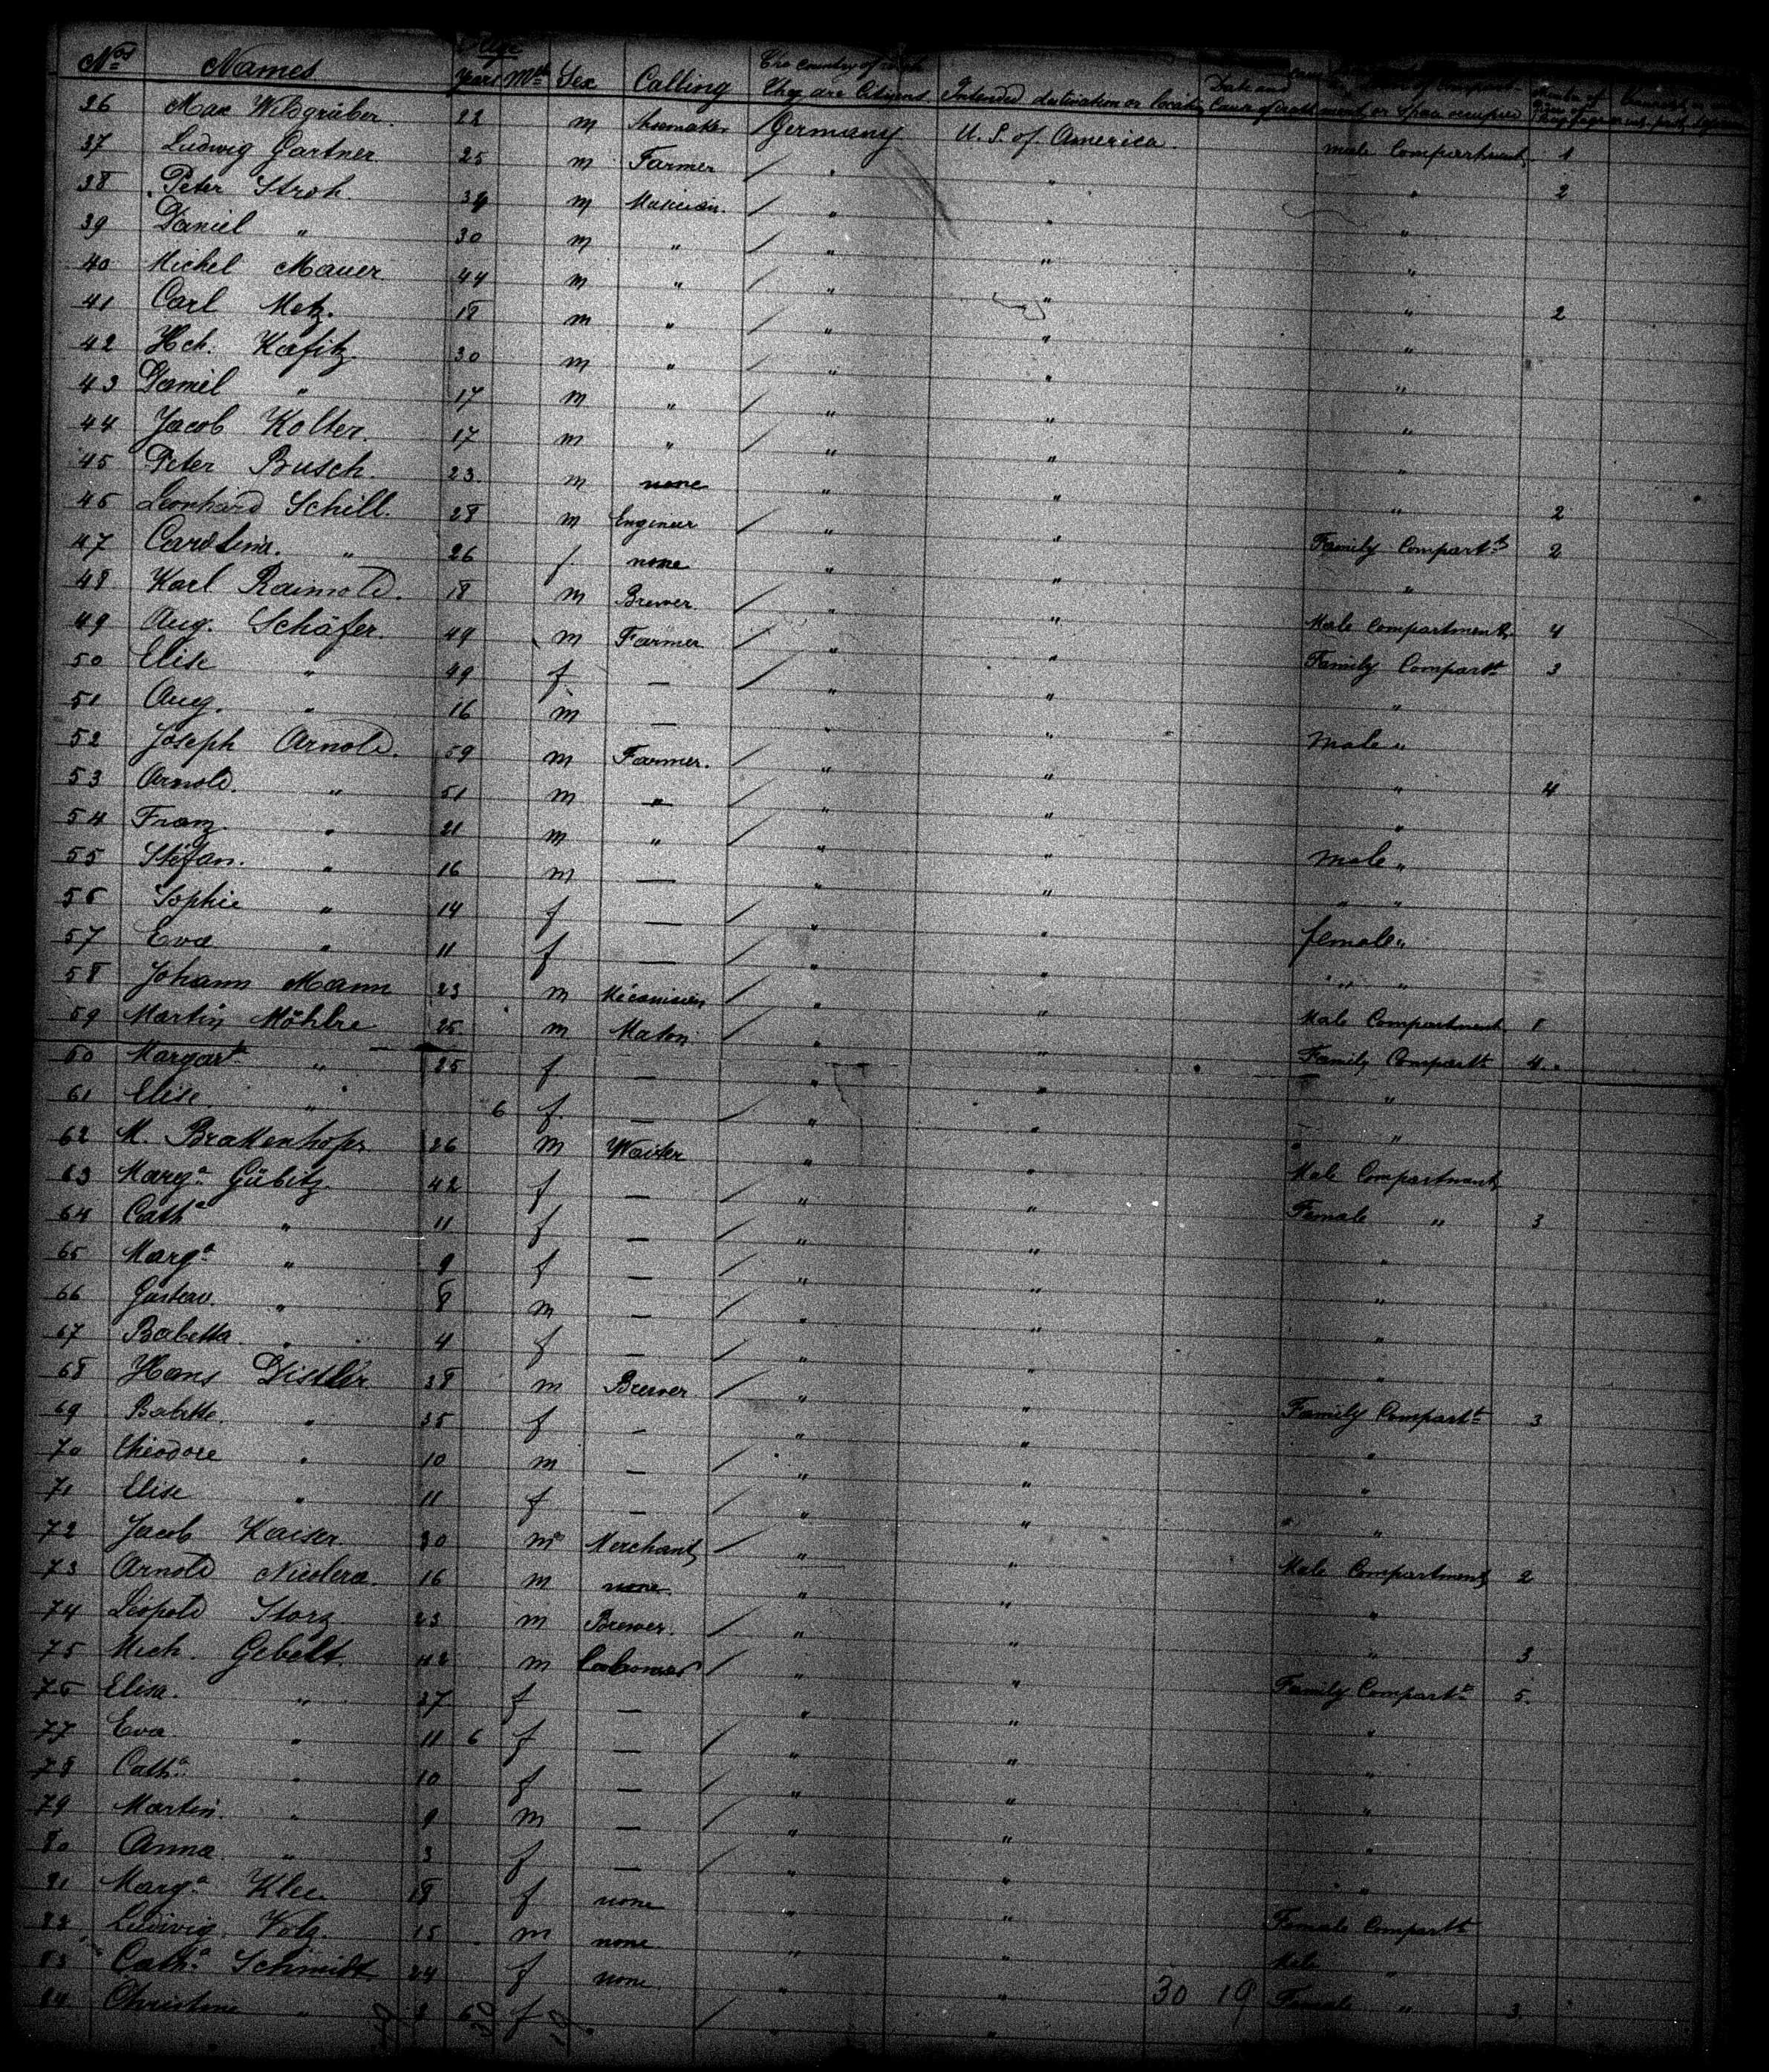 Nos Names Age Years Mths Sex Calling The country of which They are Citizens Intended destination or locality Date and Cause of death
36 Max m Shoemaker Germany U. S. of America male Compartment 1
37 Ludwig Gartner 25 m Farmer " " " 2
38 Peter Stroh. 34 m Musician. " " "
39 Daniel " 30 m " " " "
40 Michel Mauer 44 m " " " " 2
41 Carl Metz. 18 m " " " "
42 Hch. Kafitz. 30 m " " " "
43 Daniel " 17 m " " " "
44 Jacob Kolter. 17 m " " " "
45 Peter Busch. 23. m none " " " 2
46 Leonhard Schill. 28 m Engineer " " Family Compart 2
47 Carolina. " 26 f. none " " "
48 Karl 18 m Brewer " " Male Compartment 4
49 Aug. Schäfer. 49 m Farmer " " Family Compart 3
50 Elise " 49 f — " " "
51 Aug. " 16 m — " " Male "
52 Joseph Arnold. 59 m Farmer. " " " 4
53 Arnold. " 51 m " " " "
54 Franz " 21 m " " " male "
55 Stefan. " 16 m — " " " "
56 Sophie " 14 f — " " female "
57 Eva " 11 f — " " " "
58 Johann Mann 23 m " " Male Compartment 1
59 Martin 25 m " " Family Compart 4.
60 Margart " 25 f — " " "
61 Elise " 6 f. — " " "
62 M. 26 m Waiter " " Male Compartment
63 Marga Gübitz. 42 f — " " Female " 3
64 Catha " 11 f — " " "
65 Marga " 9 f — " " "
66 Gustav. " 8 m — " " "
67 Babetta " 4 f — " " "
68 Hans Distler 38 m Brewer " " Family Compart 3
69 Babette. " 35 f — " " "
70 Théodore " 10 m — " " "
71 Elise " 11 f — " " " "
72 Jacob Kaiser. 30 m Merchant " " Male Compartment 2
73 Arnold 16 m none " " "
74 Leopold Storz 23 m Brewer. " " " 3
75 Mich. Gebelt. 42 m " " Family Compart 5.
76 Elisa. " 37 f — " " "
77 Eva " 11 6 f — " " "
78 Catha " 10 f — " " "
79 Martin. " 9 m — " " "
80 Anna " 3 f — " " "
81 Marga Klee. 18 f none " " Female Compart
82 Ludwig. Volz. 15 m none " " Male "
83 Catha Schmidt 24 f none " " Female " 3
84 Christine " 6 f " "
30 19